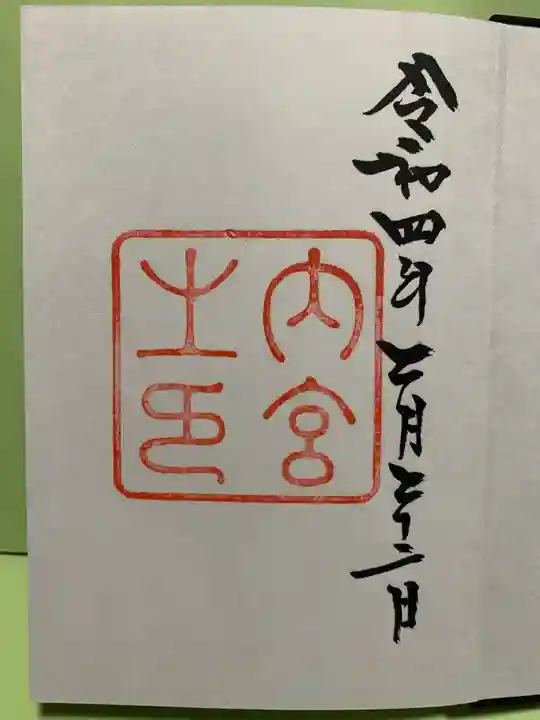 令和四年二月二十二日
内宮
之印